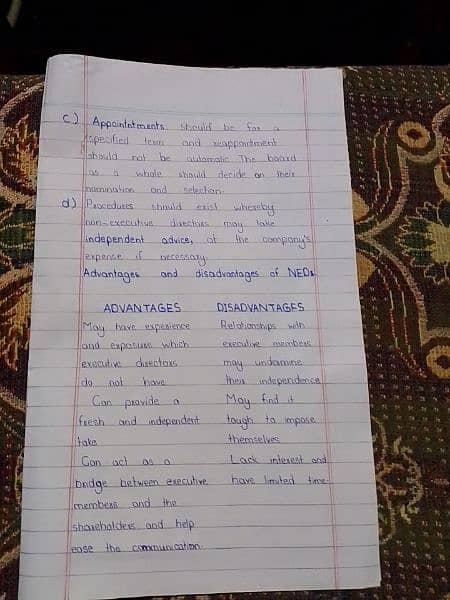 c.) Appointntments should be for a
specified term and reappointment
should not be automatic. The board
as a whole should decide on their
nomination and selection.
d) Procedures should exist whereby
non-executive directors may take
independent advice, at the company's
expense if necessary.
Advantages and disadvantages of NEDs
ADVANTAGES
May have experience
and exposure which
executive directors
do not have
Can provide a
fresh and independent
take
Can act as a
bridge between executive
members and the
shareholders and help
ease the communication.
DISADVANTAGES
Relationships with
executive members
may undamine
their independence
May find it
tough to impose
themselves
Lack interest and
have limited time